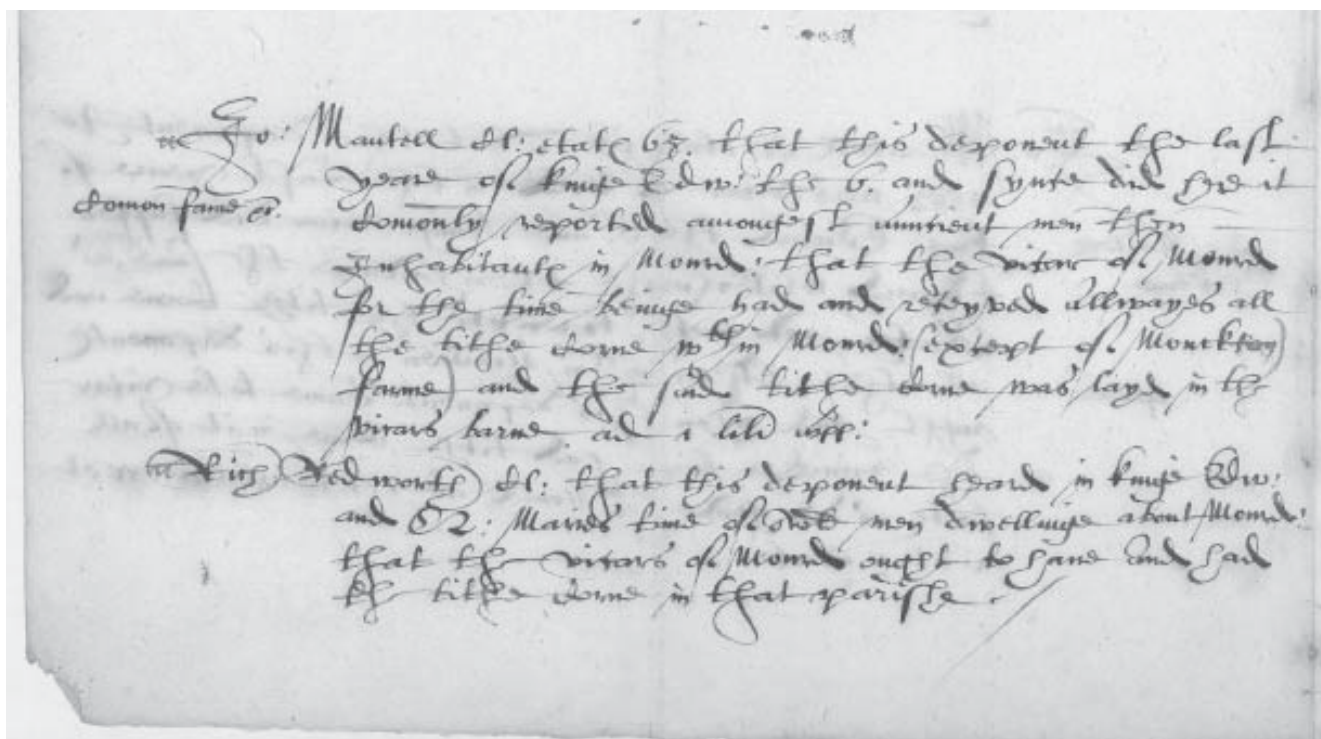 Jo: Mantell dl: etat 63. that this deponent the last
yeare of kinge Edw: the 6. and synce did here it
Comon fame
comonly reported amongest auncient men then
Inhabitantes in Mound: that the vicar of Mound
for the time beinge had and receyved allwayes all
the tithe corne wthin Mound: (except of Monckton
farme) and the said tithe corne was layd in the
vicars barne ad
Rich Redworth dl: that this deponent heard in kinge Edw:
and Q: Maries time of men dwellinge about Mound:
that the vicars of Mound ought to have and had
the tithe corne in that parishe.